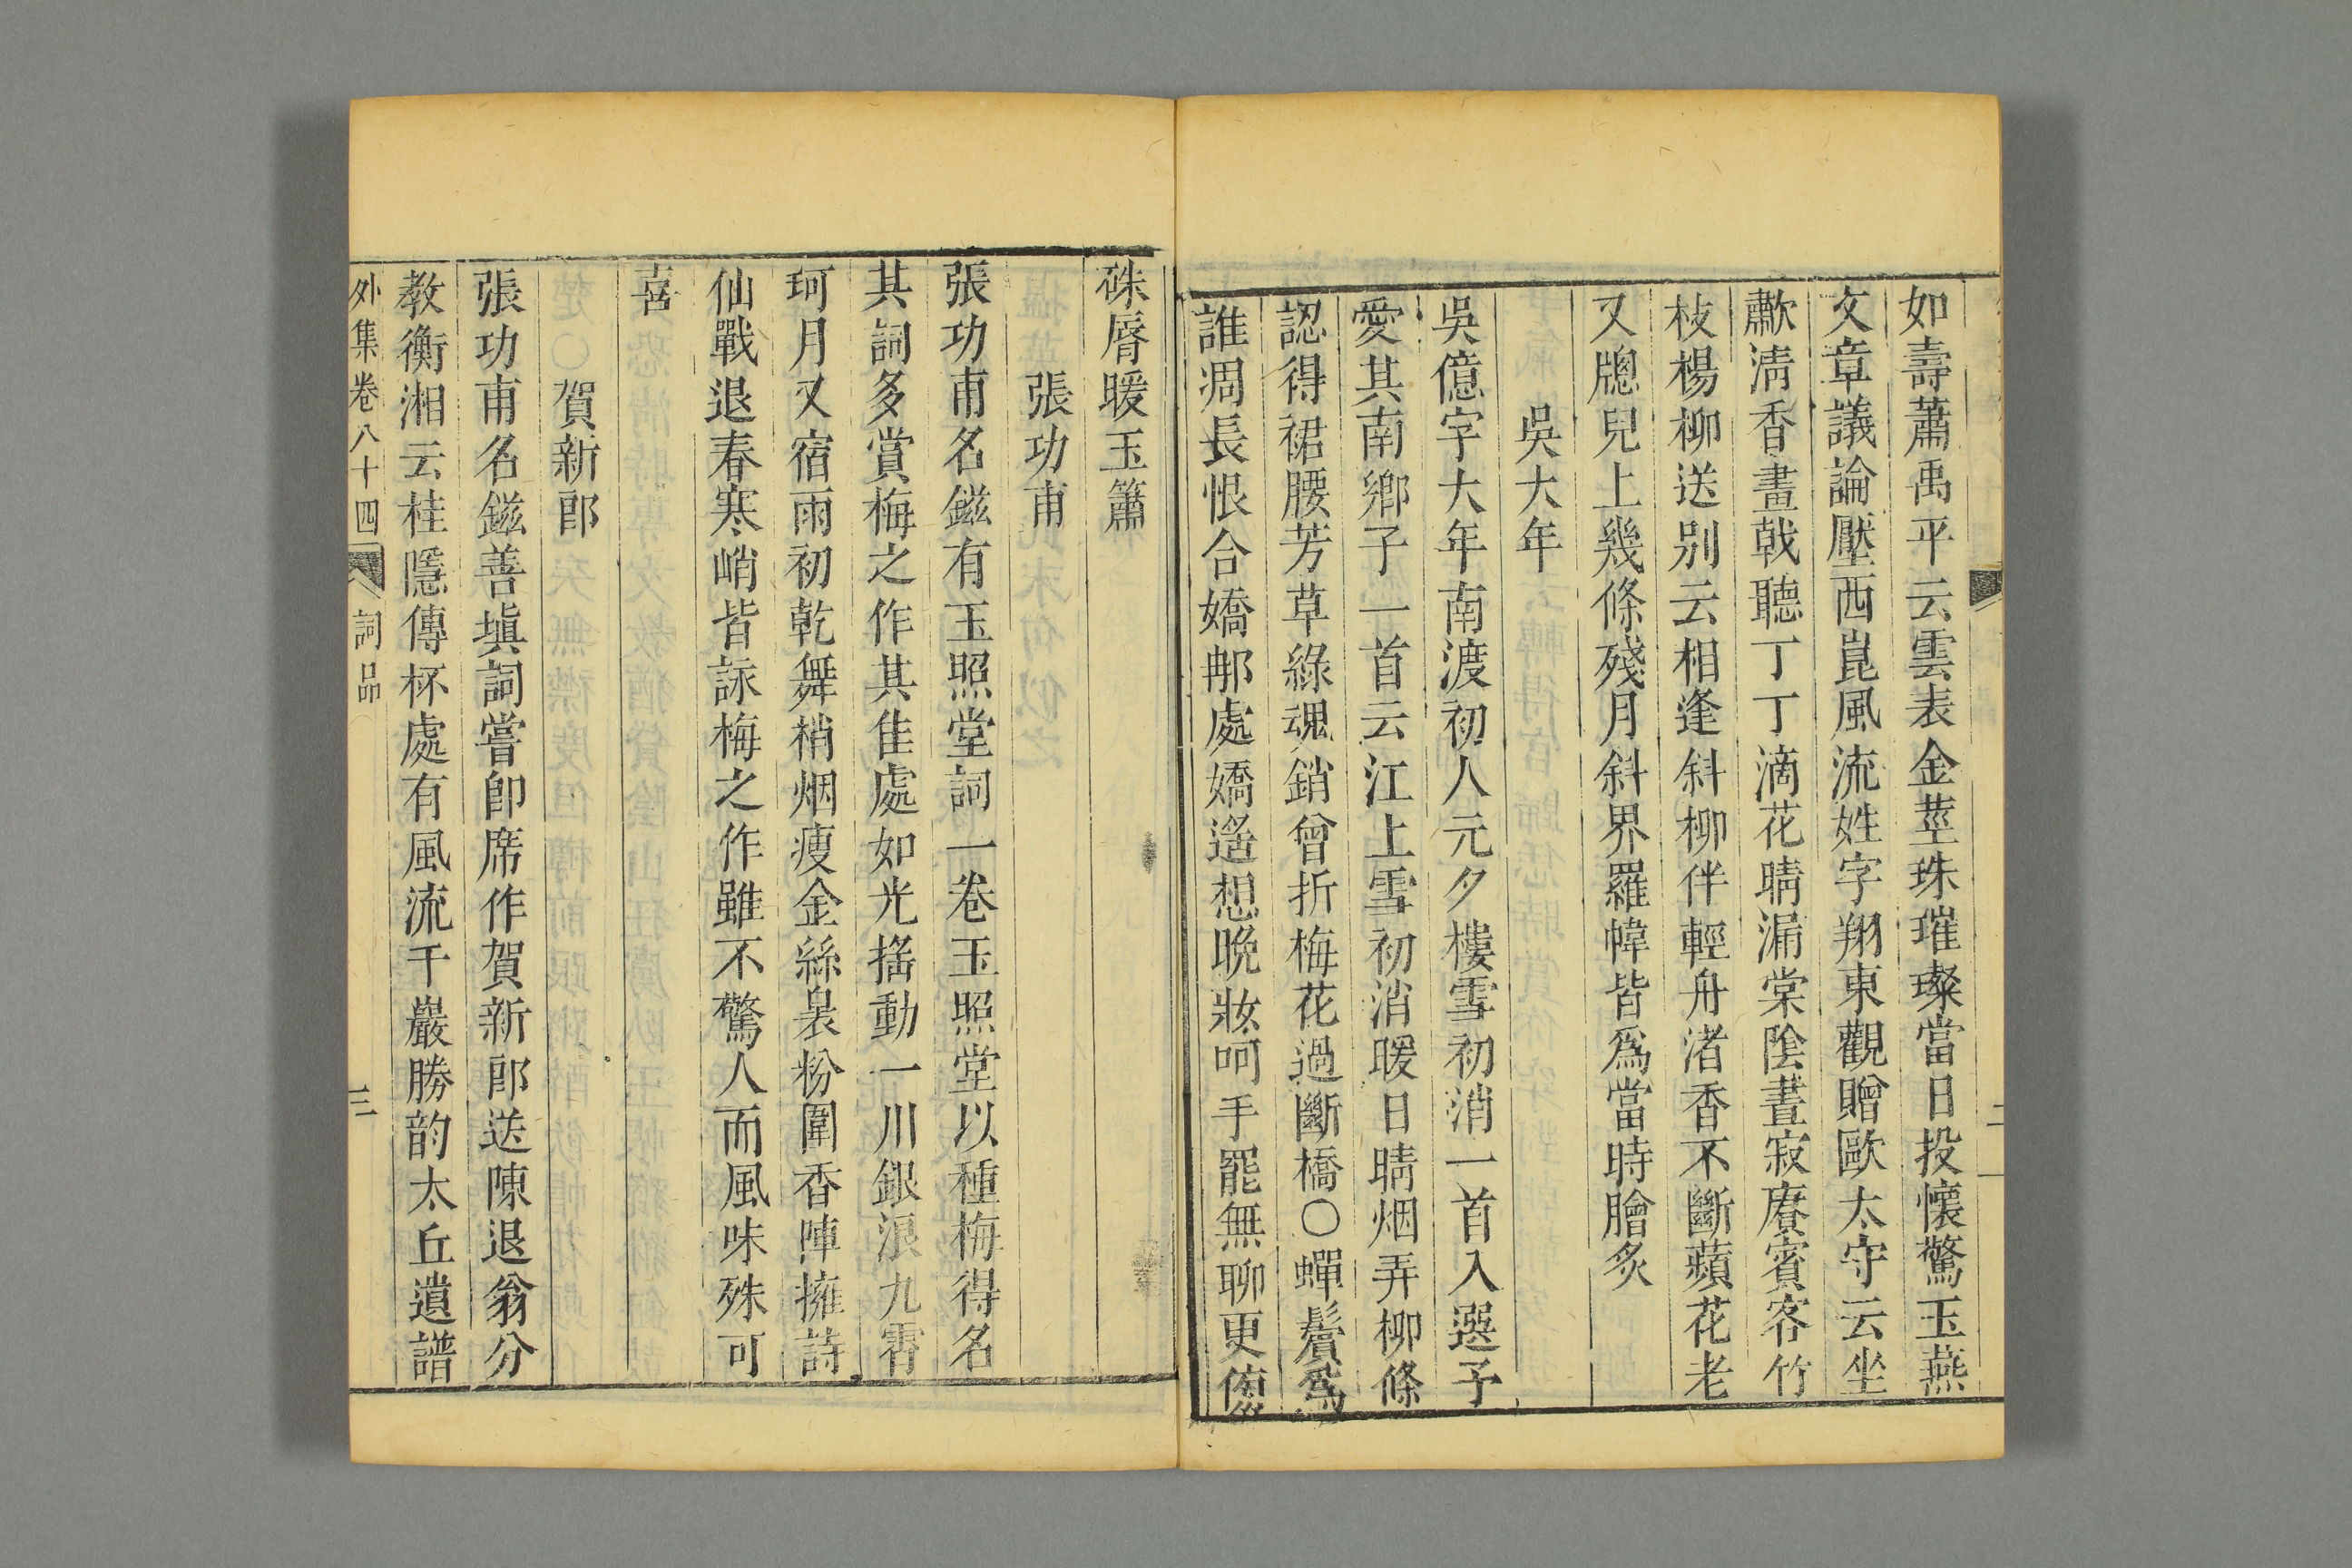 如壽蕭禹平云雲表金莖珠璀璨當日投懷驚玉燕
文章議論壓西崑風流姓字翔東觀贈歐太守云坐
歗清香畫戟聽丁丁滴花晴漏棠陰晝寂賡賓客竹
枝楊柳送别云相逢斜柳伴輕舟渚香不斷蘋花老
又牕兒上幾條殘月斜界羅幃皆爲當時膾炙
吳大年
吳億字大年南渡初人元夕樓雪初消一首入選予
愛其南鄉子一首云江上雪初消暖日晴烟弄柳條
認得裙腰芳草綠魂銷曾折梅花過斷橋○蟬鬢爲
誰凋長恨合嬌郍處嬌遙想晚妝呵手罷無聊更傍
硃脣暖玉簫
張功甫
張功甫名鎡有玉照堂詞一卷玉照堂以種梅得名
其詞多賞梅之作其佳處如光搖動一川銀浪九霄
珂月又宿雨初乾舞梢烟瘦金絲裊粉圍香陣擁詩
仙戰退春寒峭皆詠梅之作雖不驚人而風味殊可
喜
賀新郎
張功甫名鎡善塡詞嘗卽席作賀新郎送陳退翁分
教衡湘云桂隱傳杯處有風流千巖勝韵太丘遺譜
外集卷八十四 詞品 三